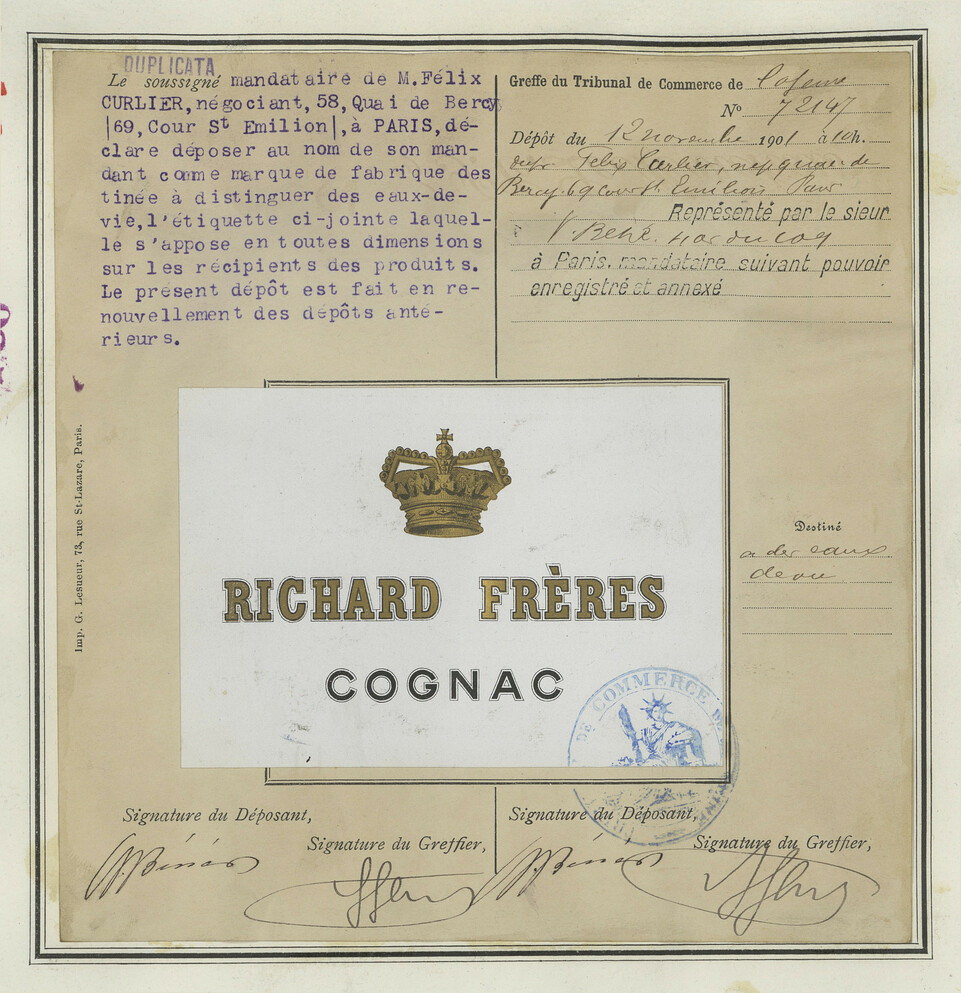 DUPLICATA
Le soussigné mandataire de M.Félix
CURLIER,négociant,58,Quai de Bercy
|69,Cour St Emilion|,à PARIS,dé-
clare déposer au nom de son man-
dant comme marque de fabrique des
tinée à distinguer des eaux-de-
vie,l'étiquette ci-jointe laquel-
le s'appose en toutes dimensions
sur les récipients des produits.
Le présent dépôt est fait en re-
nouvellement des dépôts anté-
rieurs.
Greffe du Tribunal de Commerce de
No 72147
Dépôt du 12 novembre 1901 à 10h.
Felix Curlier, quai de
Bercy. 69 cour St. Emilion Paris
Représenté par le sieur
du coq
à Paris, mandataire suivant pouvoir
enregistré et annexé
Imp. G. Lesueur, 73, rue St-Lazare, Paris.
RICHARD FRÈRES
COGNAC
DE COMMERCE DE
Destiné
a des eaux
de vie
Signature du Déposant,
Signature du Greffier,
Signature du Déposant,
Signature du Greffier,